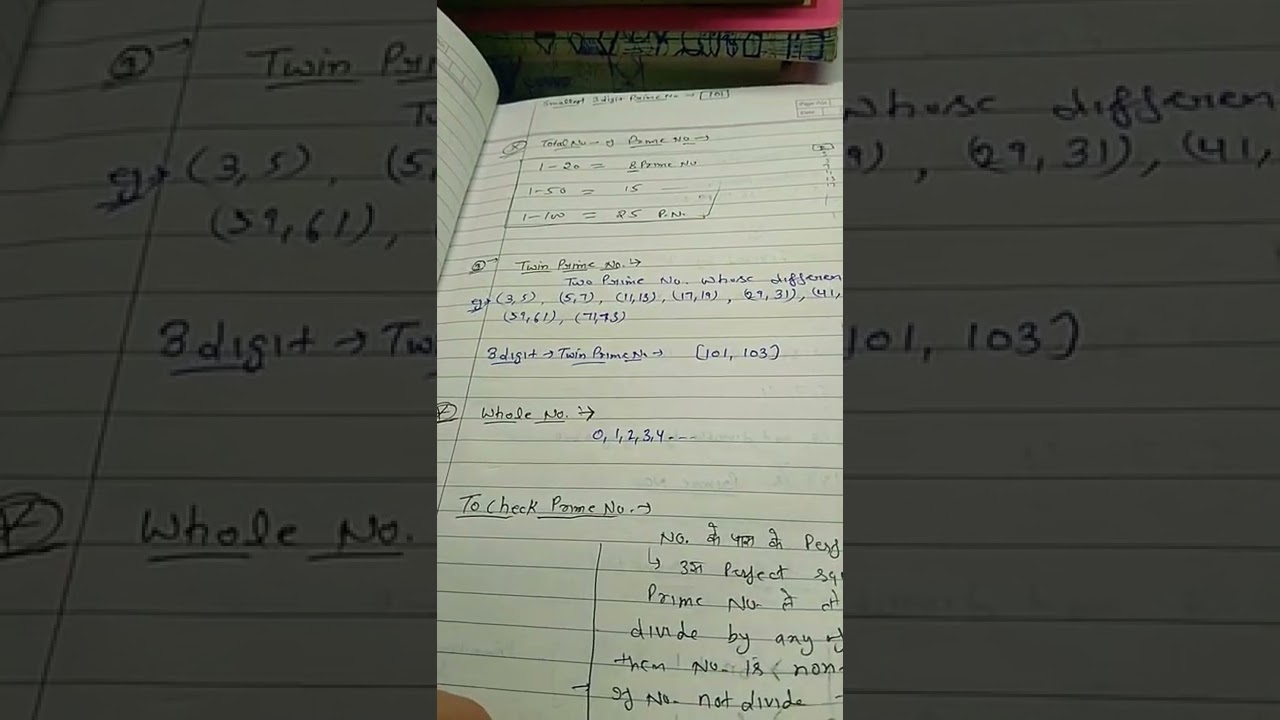 Smallest 3 digit Prime No. → [101]
Total No. of Prime No →
1-20 = 8 Prime No
1-50 = 15
1-100 = 25 P.No.
Twin Prime No. ↳
Two Prime No. whose differen
eg→ (3,5), (5,7), (11,13), (17,19), (29,31), (41,
(59,61), (71,73)
3 digit → Twin Prime No → [101, 103]
Whole No. →
0, 1, 2, 3, 4 ----
To Check Prime No. →
No. के पास के Perf
↳ उस Perfect squ
Prime No. से
divide by any of
them No. is non-
If No. not divide